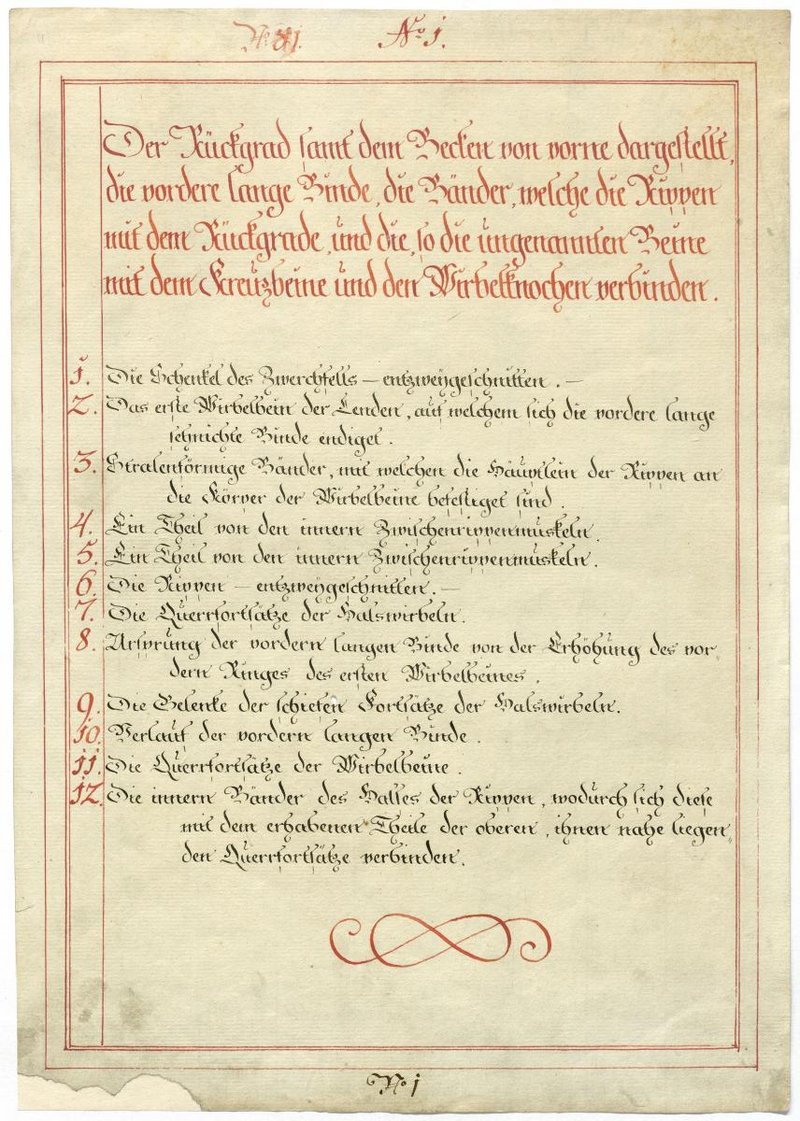 No 81. No 1.
Der Rückgrad samt dem Becken von vorne dargestellt,
die vordere lange Binde, die Bänder, welche die Rippen
mit dem Rückgrade, und die, so die ungenannten Beine
mit dem Kreuzbeine und den Wirbelknochen verbinden.
1. Die Schenkel des Zwerchfells – entzweygeschnitten. –
2. Das erste Wirbelbein der Lenden, auf welchem sich die vordere lange
sehnichte Binde endiget.
3. Stralenförmige Bänder, mit welchen die Häuptlein der Rippen an
die Körper der Wirbelbeine befestiget sind.
4. Ein Theil von den innern Zwischenrippenmuskeln.
5. Ein Theil von den innern Zwischenrippenmuskeln.
6. Die Rippen – entzweygeschnitten. –
7. Die Querrfortsätze der Halswirbeln.
8. Ursprung der vordern langen Binde von der Erhöhung des vor
dern Ringes des ersten Wirbelbeines.
9. Die Gelenke der schiefen Fortsätze der Halswirbeln.
10. Verlauf der vordern langen Binde.
11. Die Querrfortsätze der Wirbelbeine.
12. Die innern Bänder des Halses der Rippen, wodurch sich diese
mit dem erhabenen Theile der oberen, ihnen nahe liegen,
den Querrfortsätze verbinden.
No 1